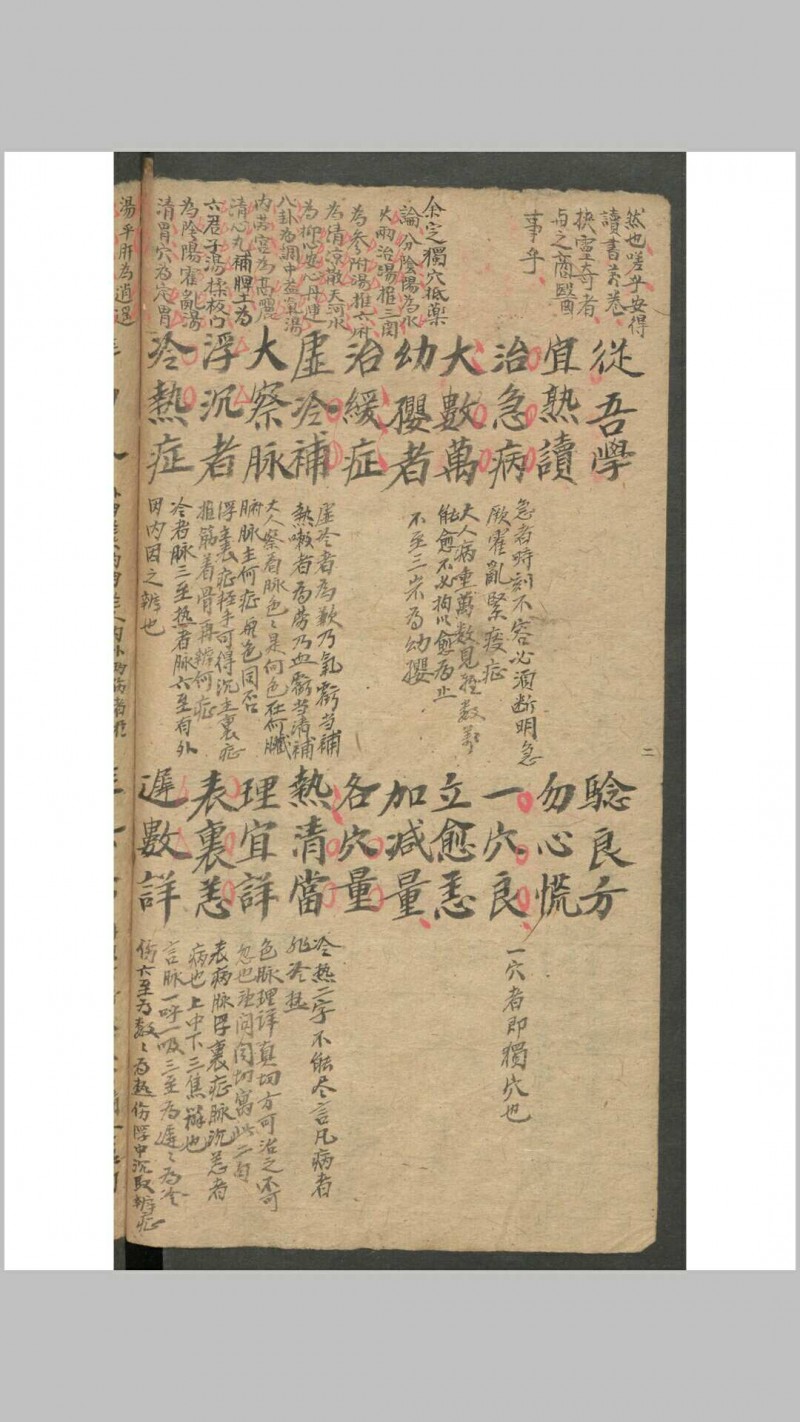 然也嗟乎安得
讀書萬卷
抉靈奇者
與之商醫
事乎
余定獨穴抵藥
論分陰陽為水
火兩治湯推三関
為參附湯推六府
為清涼散天河水
為抑心安心丹運
八卦為調中益氣湯
内勞宮為高麗
清心丸補脾土為
六君子湯揉板门
為陰陽霍亂湯
清胃穴為定胃
湯平肝為逍遥
從吾學
宜熟讀
治急病
大數萬
幼嬰者
治緩症
虛冷補
大察脉
浮沉者
冷熱症
急者時刻不容必須断明急
厥霍亂緊痰症
大人病重萬数見輕数萬
能愈不必拘以愈為止
不至三岁為幼嬰
虛冷者為歉乃氣虧当補
熱嗽者為劳乃血虧当清補
大人察看脉色色是何色在何臟
腑脉主何症與色同否
浮主表症輕手可得沉主裏症
推筋着骨再辨何症
冷者脉三至热者脉六至有外
因内因之辨也
二
驗良方
勿心慌
一穴良
立愈悉
加减量
各穴量
熱清當
理宜詳
表裏恙
遲數詳
一穴者即獨穴也
冷热二字不能尽言凡病者
非冷热
色脉理详真切方可治之不可
忽也望闻问切寓此二句
表病脉浮裏症脉沉恙者
病也上中下三焦辨也
言脉一呼一吸三至为遲遲为冷
伤六至为数数为热伤浮中沉取辨症